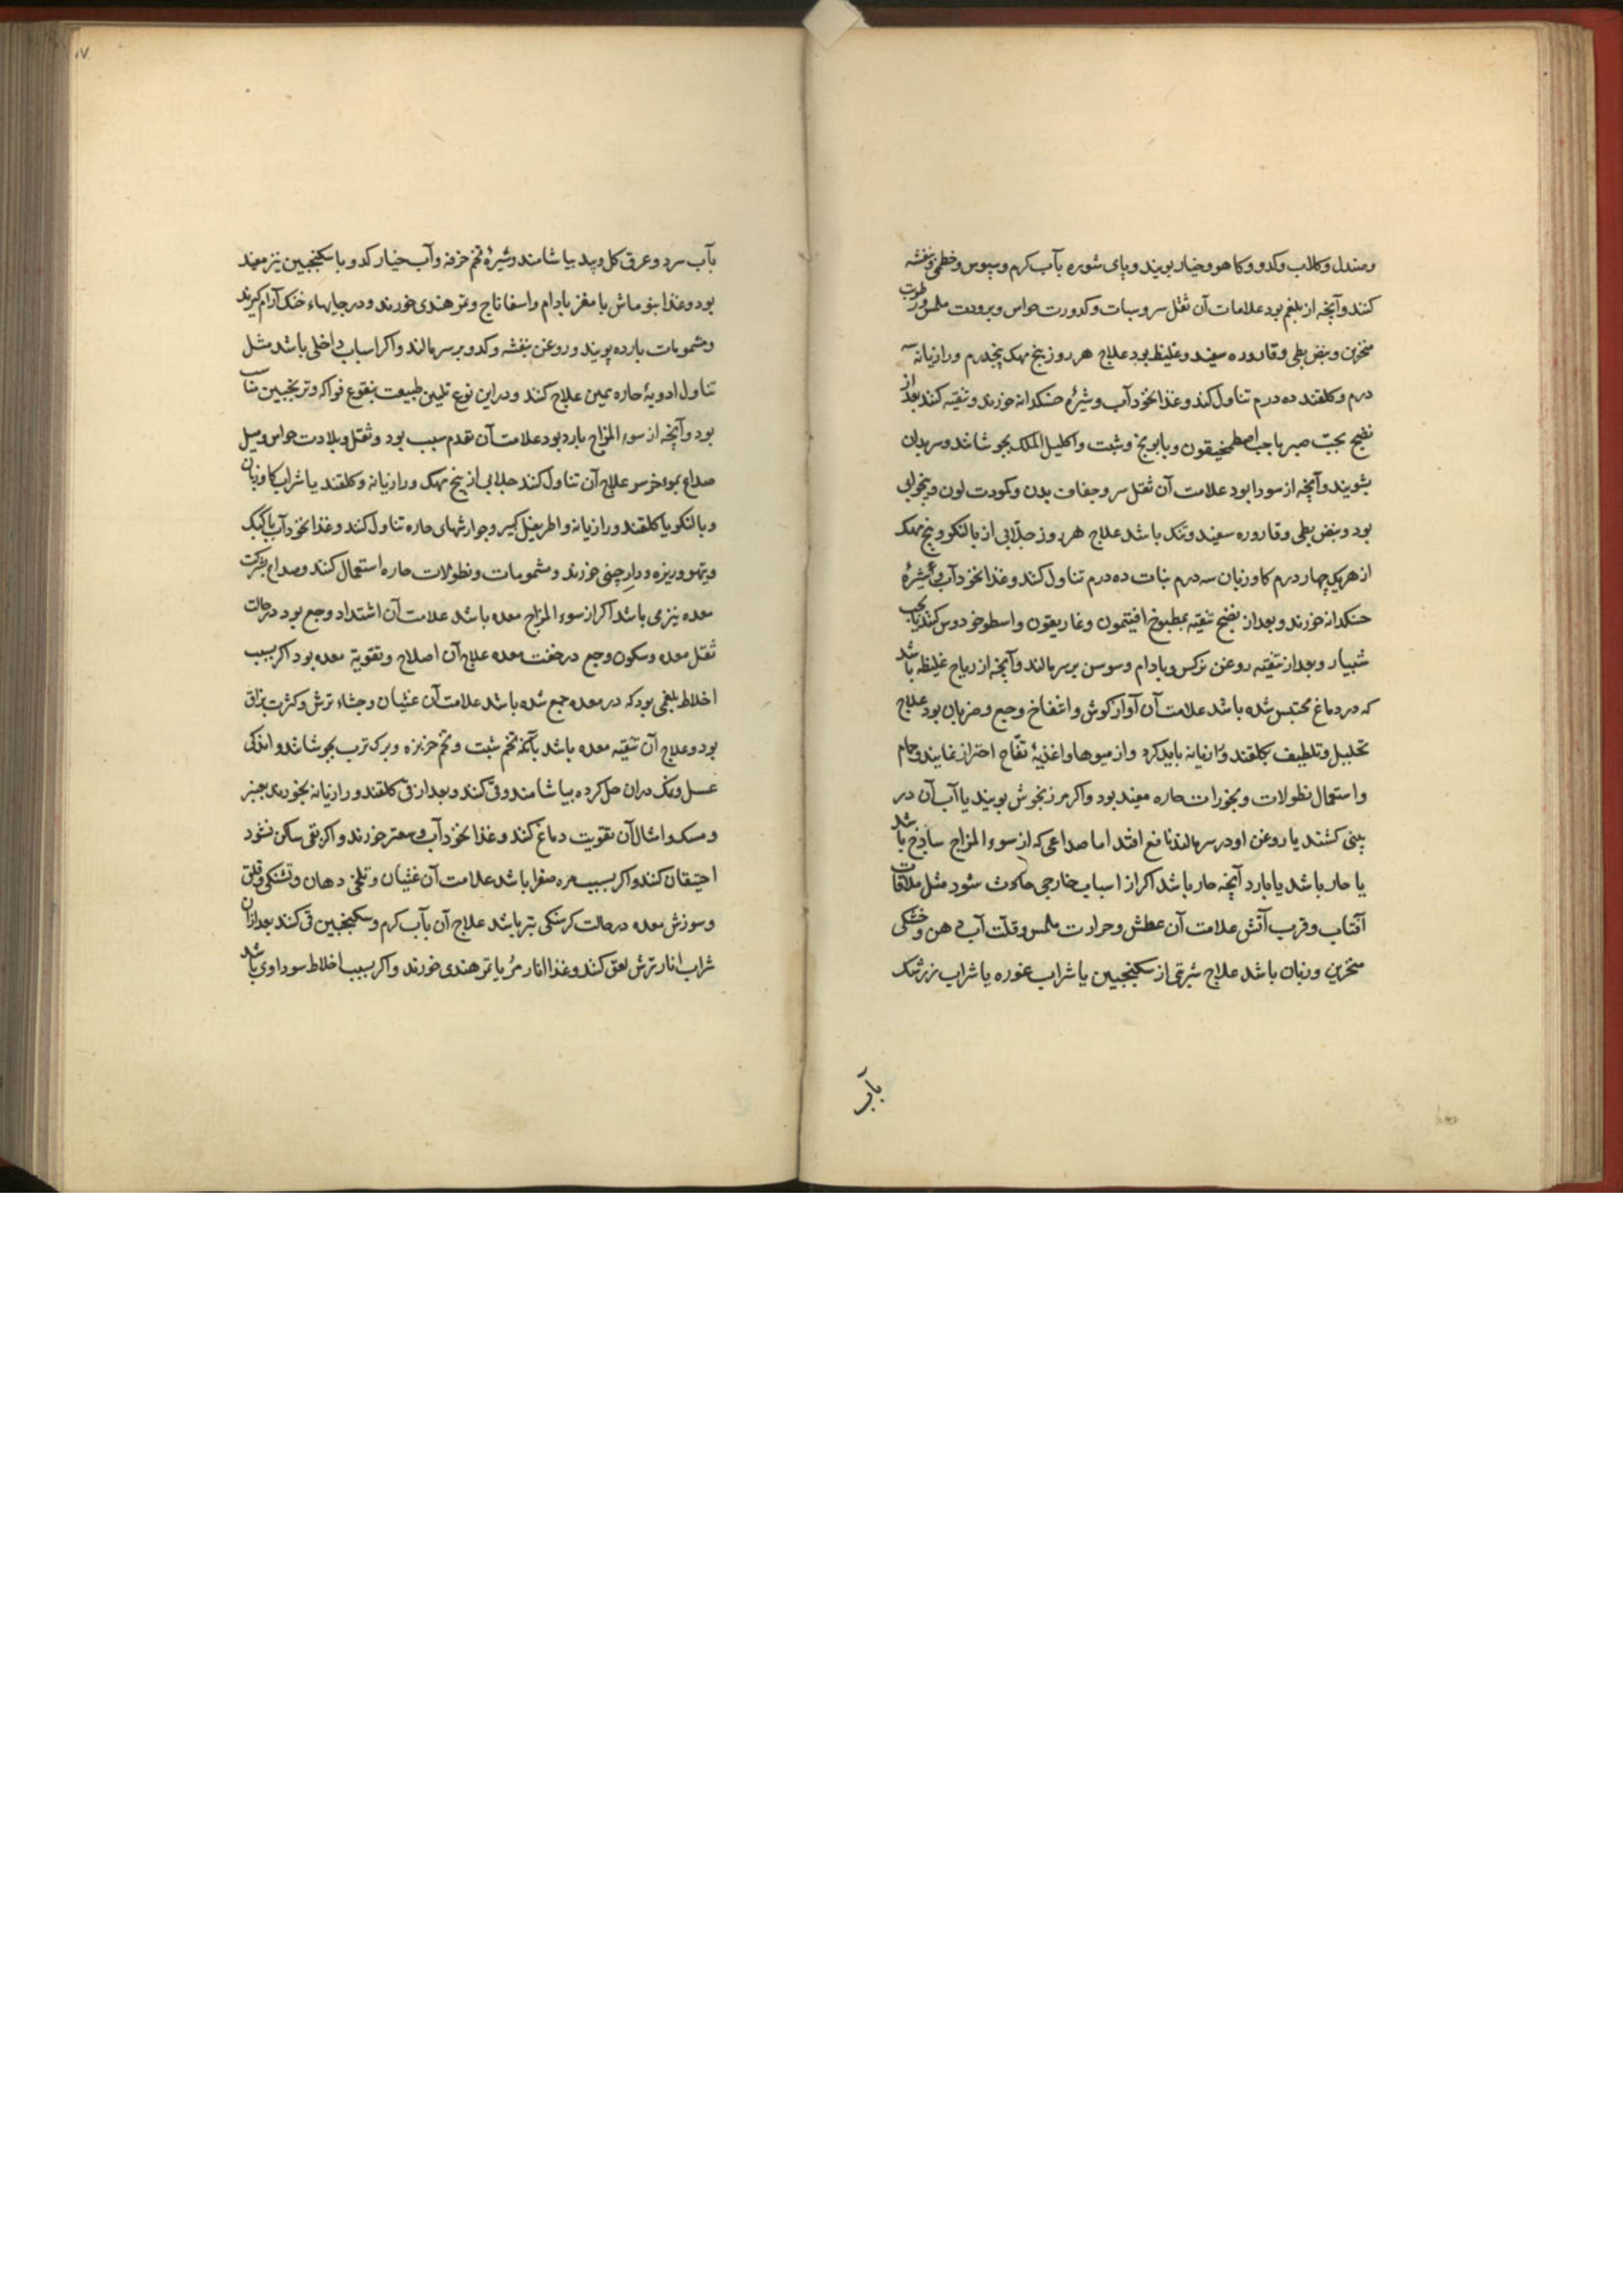 وصندل وکلاب وکدو وکاهو وخیار بویند وپای شویه بآب کرم وسپوس وخطمی وبنفشه
کنند وآنچه از بلغم بود علامات آن ثقل سر وسبات وکدورت حواس وبرودت ملمس ورطوبت
منخرین ونبض بطی وقاروره سفید وغلیظ بود علاج هر روز بیخ مهک پنجدرم ورازیانه سه
درم وکلقند ده درم تناول کند وغذا نخود آب وشیرۀ خسکدانه خورند وتنقیه کند بعد از
نضج بحبّ صبر یا حب اصطمخیقون وبابونج وشبت واکلیل الملک بجوشانند وسر بدان
بشویند وآنچه از سودا بود علامت آن ثقل سر وجفاف بدن وکودت لون وبیخوابی
بود ونبض بطی وقاروره سفید وتنک باشد علاج هر روز جلّابی از بالنکو وبیخ مهک
از هر یک چهار درم کاوزبان سه درم نبات ده درم تناول کند وغذا نخود آب بی شیرۀ
خسکدانه خورند وبعد از نضج تنقیه بمطبوخ افتیمون وغاریقون واسطوخودوس کنند یا بحب
شبیار وبعد از تنقیه روغن نرکس وبادام وسوسن بر سر مالند وآنچه از ریاح غلیظه باشد
که در دماغ محتبس شده باشد علامت آن آواز کوش وانتفاخ وجع وضربان بود علاج
تحلیل وتلطیف بکلقند ورازیانه باید کرد واز میوها واغذیۀ نفّاخ احتراز نمایند وحمام
واستعمال نطولات وبخورات حاره مفید بود واکر مرزنجوش بویند یا آب آن در
بینی کشند یا روغن او در سر مالند نافع افتد اما صداعی که از سوء المزاج ساذج باشد
یا حار باشد یا بارد آنچه حار باشد اکر از اسباب خارجی حادث شود مثل ملاقات
آفتاب وقرب آتش علامت آن عطش وحرارت ملمس وقلّت آب دهن وخشکی
منخرین وزبان باشد علاج شربتی از سکنجبین یا شراب غوره یا شراب زرشک
بآب
۱۷
بآب سرد وعرق کل وبید بیاشامند وشیرۀ تخم خرفه وآب خیار کدو با سکنجبین نیز مفید
بود وغذا بنوماش با مغز بادام واسفاناج وتمر هندی خورند ودر جایهاء خنک آرام کیرند
ومشمومات بارده بویند وروغن بنفشه وکدو بر سر مالند واکر اسباب داخلی باشد مثل
تناول ادویۀ حاره بهمین علاج کنند ودر این نوع تلیین طبیعت بنقوع فواکه وترنجبین مناسب
بود وآنچه از سوء المزاج بارد بود علامت آن تقدم سبب بود وثقل وبلادت حواس ومیل
صداع بموخر سر علاج آن تناول کند جلابی از بیخ مهک ورازیانه وکلقند یا شراب کاوزبان
وبالنکو یا کلقند ورازیانه واطریفل کبیر وجوارشهای حاره تناول کند وغذا نخود آب با کبک
وتیهو وزیره ودارچینی خورند ومشمومات ونطولات حاره استعمال کنند وصداع بشرکت
معده نیز می باشد اکر از سوء المزاج معده باشد علامت آن اشتداد وجع بود در حالت
ثقل معده وسکون وجع در خفت معده علاج آن اصلاح وتقویة معده بود اکر بسبب
اخلاط بلغمی بود که در معده جمع شده باشد علامت آن غثیان وجشاء ترش وکثرت بزاق
بود وعلاج آن تنقیه معده باشد بآنکه تخم شبت وتخم خربزه وبرک ترب بجوشانند واندکی
عسل ونمک دران حل کرده بیاشامند وقی کنند وبعد از قی کلقند ورازیانه بخورند بعنبر
ومسک وامثال آن تقویت دماغ کنند وغذا نخود آب وصعتر خورند واکر بقی ساکن نشود
احتقان کنند واکر بسبب مره صفرا باشد علامت آن غثیان وتلخی دهان وتشنکی وقلق
وسوزش معده در حالت کرسنکی بتر باشد علاج آن بآب کرم وسکنجبین قی کنند بعد ازان
شراب انار ترش لعق کنند وغذا انار مز یا تمر هندی خورند واکر بسبب اخلاط سوداوی باشد